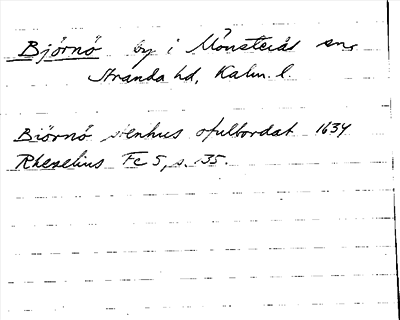 Björnö by i Mönsterås sn,
Stranda hd, Kalm. l.
Biörnö stenhus ofulbordat 1634
Rhezelius Fc 5, s. 35.